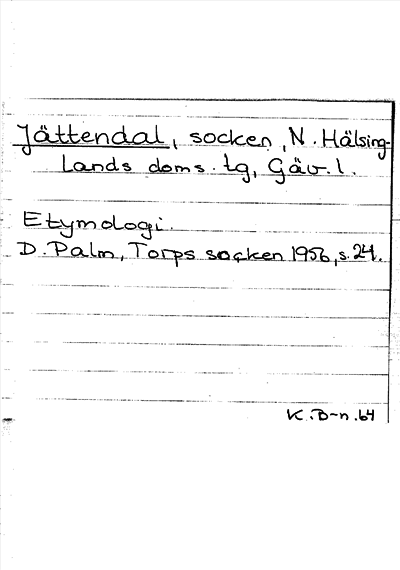 Jättendal, socken, N. Hälsing-
lands doms. tg, Gäv. l.
Etymologi.
D. Palm, Torps socken 1956, s. 24.
K. D-n. 64